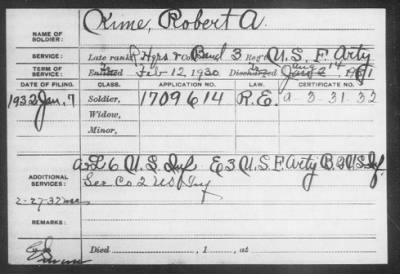 NAME OF SOLDIER: Kime, Robert A.
SERVICE: Late rank, Hqrs & Band 3 Reg't U.S. F. Arty
TERM OF SERVICE: Enlisted Feb 12, 1930 Discharged Aug 14, 1931
DATE OF FILING. CLASS. APPLICATION NO. LAW. CERTIFICATE NO.
1932 Jan. 7 Soldier, 1709614 R.E. a 3-31-32
Widow,
Minor,
L 6 U.S. Inf E 3 U.S. F Arty B. 2 U.S. Inf.
ADDITIONAL SERVICES: Ser. Co 2 US Inf
2-27-32
REMARKS:
Died , 1 , at